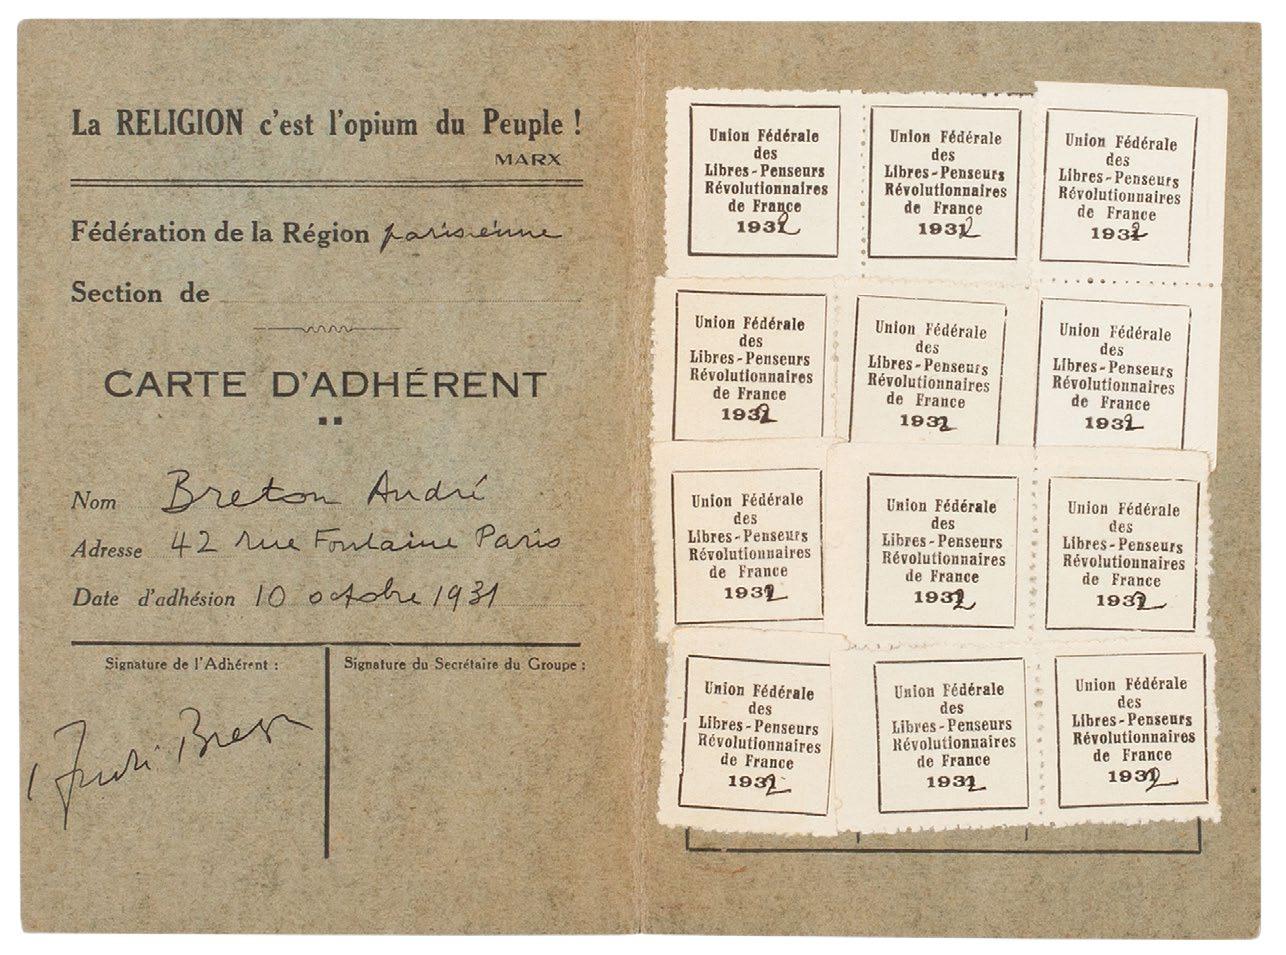 La RELIGION c'est l'opium du Peuple !
MARX
Fédération de la Région parisienne
Section de
CARTE D'ADHÉRENT
Nom Breton André
Adresse 42 rue Fontaine Paris
Date d'adhésion 10 octobre 1931
Signature de l'Adhérent :
Signature du Secrétaire du Groupe :
André Breton
Union Fédérale
des
Libres-Penseurs
Révolutionnaires
de France
1932
Union Fédérale
des
Libres-Penseurs
Révolutionnaires
de France
1932
Union Fédérale
des
Libres-Penseurs
Révolutionnaires
de France
1932
Union Fédérale
des
Libres-Penseurs
Révolutionnaires
de France
1932
Union Fédérale
des
Libres-Penseurs
Révolutionnaires
de France
1932
Union Fédérale
des
Libres-Penseurs
Révolutionnaires
de France
1932
Union Fédérale
des
Libres-Penseurs
Révolutionnaires
de France
1932
Union Fédérale
des
Libres-Penseurs
Révolutionnaires
de France
1932
Union Fédérale
des
Libres-Penseurs
Révolutionnaires
de France
1932
Union Fédérale
des
Libres-Penseurs
Révolutionnaires
de France
1932
Union Fédérale
des
Libres-Penseurs
Révolutionnaires
de France
1932
Union Fédérale
des
Libres-Penseurs
Révolutionnaires
de France
1932